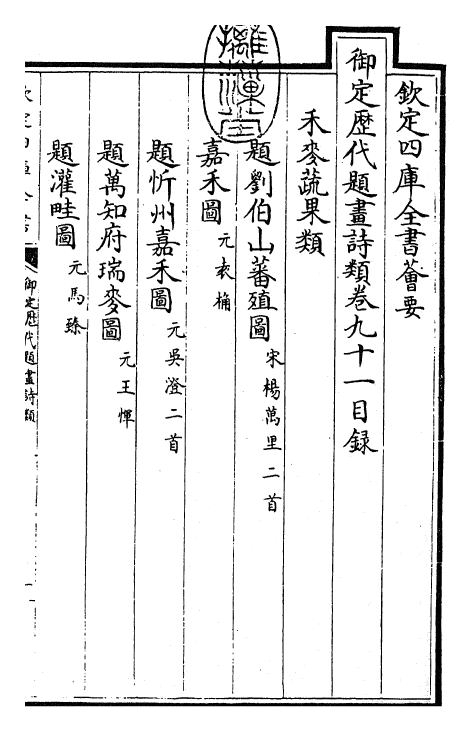 欽定四庫全書薈要
御定歷代題畫詩類卷九十一目録
禾麥蔬果類
題劉伯山蕃殖圖 宋楊萬里二首
嘉禾圖 元袁桷
題忻州嘉禾圖 元吳澄二首
題萬知府瑞麥圖 元王惲
題灌畦圖 元馬臻
御定歷代題畫詩類
一